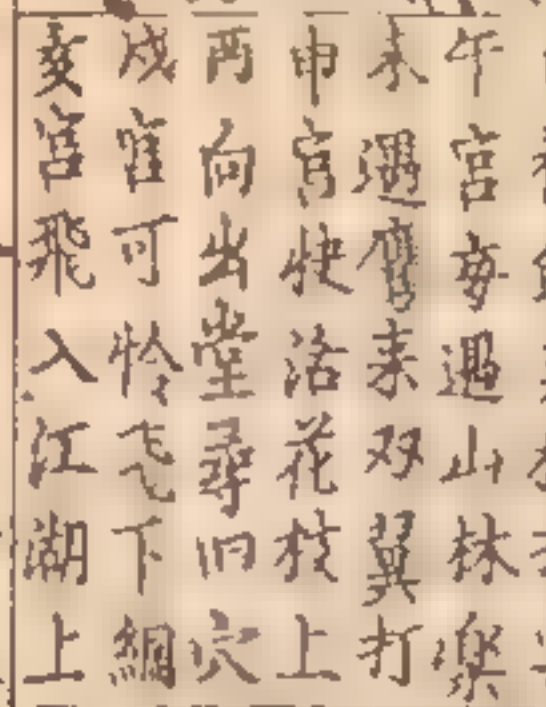 午宫每遇山林楽
未遇鹰来双翼打
申宫快活花枝上
酉向出堂尋旧穴
戌宫可怜飞下網
亥宫飛入江湖上